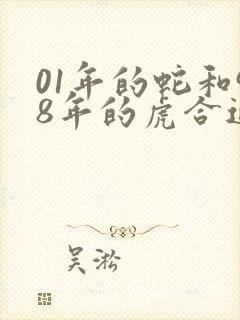 01年的蛇和
8年的虎合
吴淞